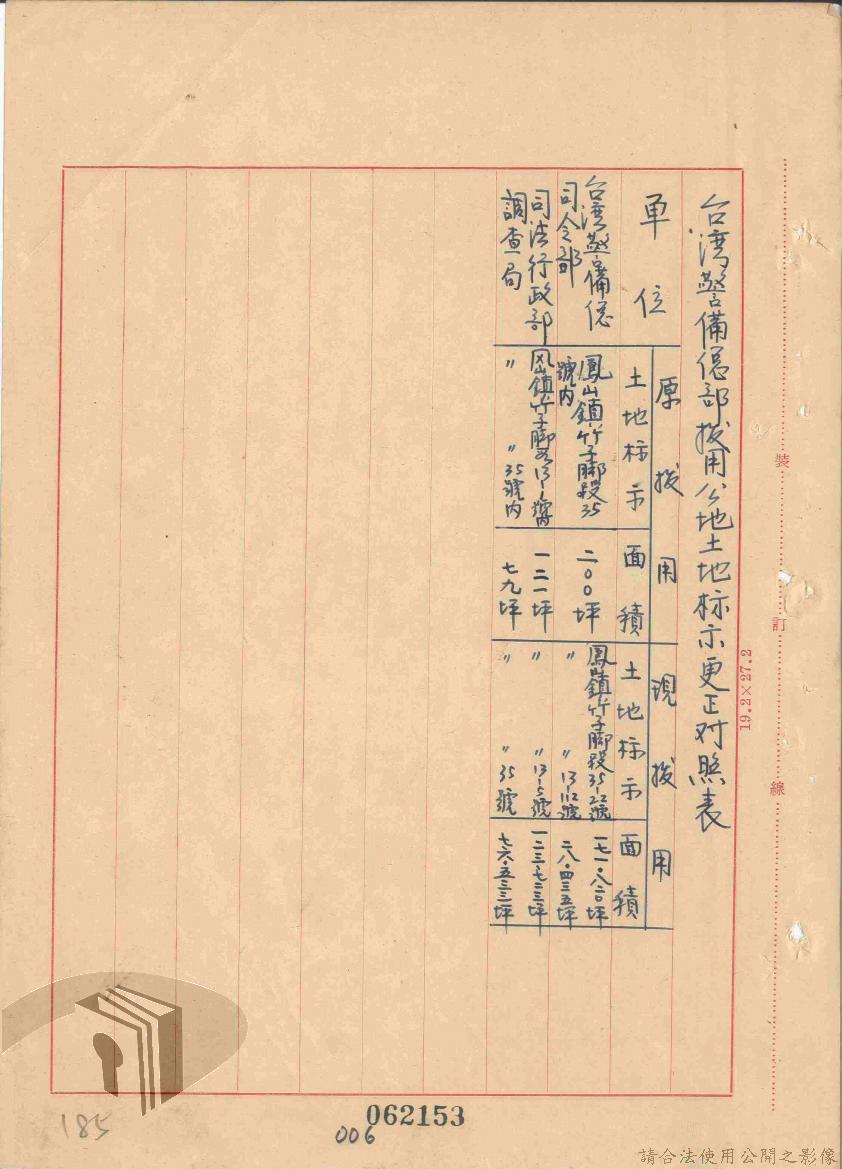 台湾警備總部拨用公地土地标示更正对照表
單位
原拨用
現拨用
土地标示
面積
土地标示
面積
台湾警備總
司令部
鳳山鎮竹子腳段35
號内
二00坪
鳳山鎮竹子腳段35-22號
一七一·八二0坪
〃 〃13-112號
二八·四三五坪
司法行政部
調查局
凤山鎮竹子腳段13-1號内
一二一坪
〃 〃13-5號
一二三·七二三坪
〃 〃35號内
七九坪
〃 〃35號
七六·五三三坪
裝
訂
線
19.2×27.2
062153
006
185
請合法使用公開之影像